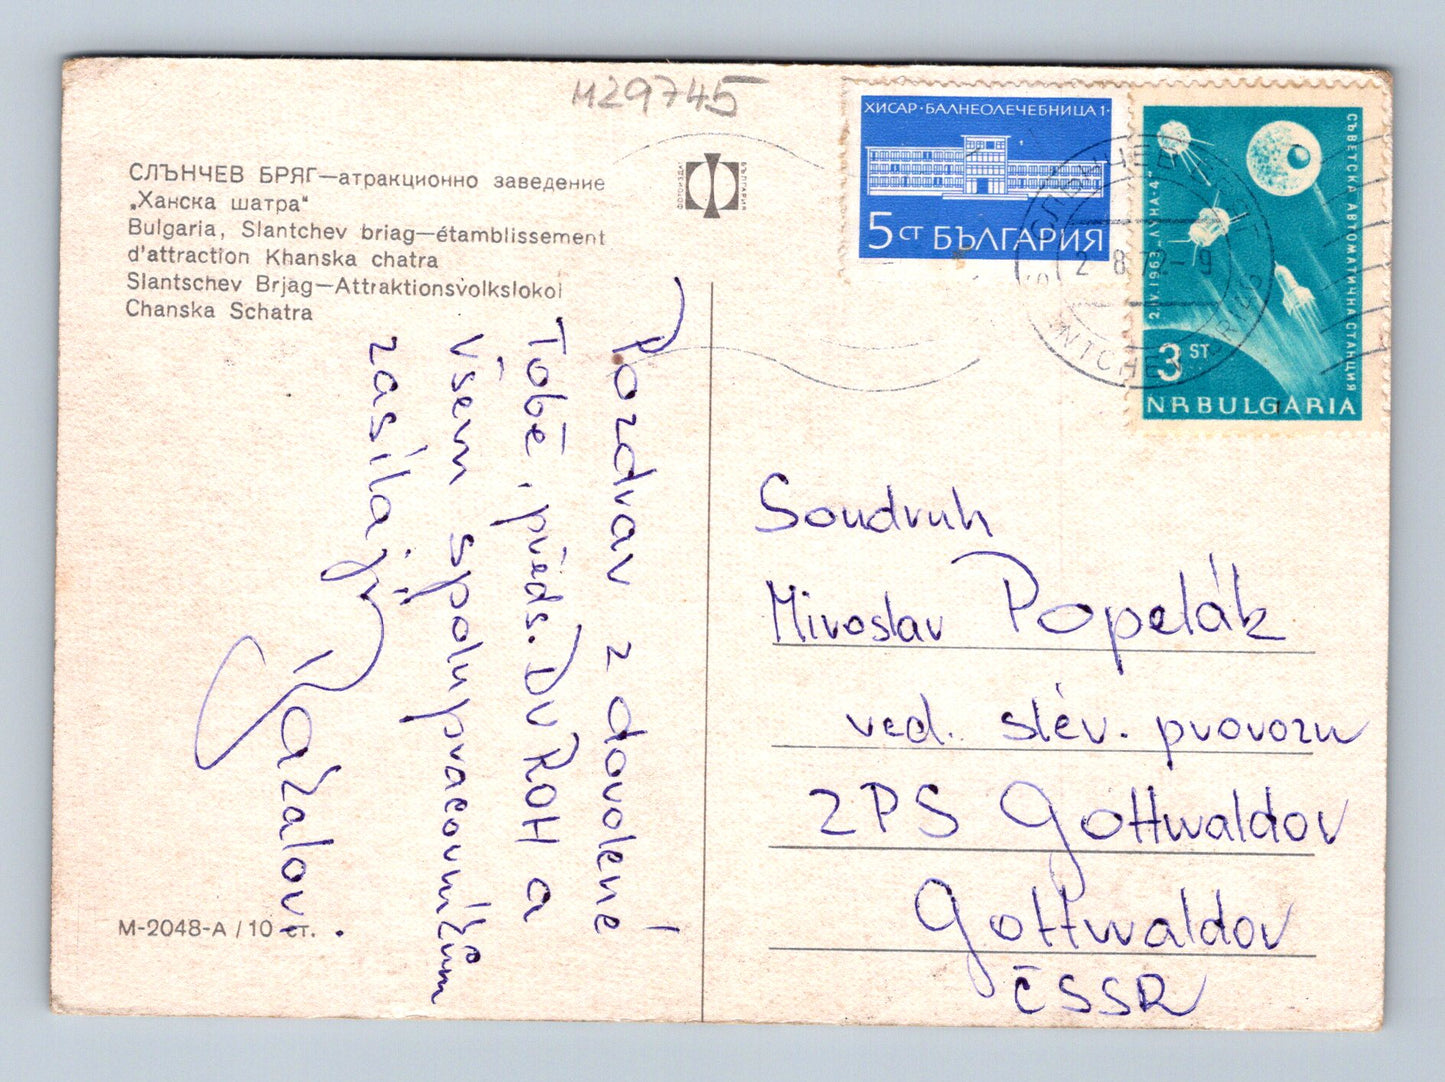 M29745
СЛЪНЧЕВ БРЯГ—атракционно заведение
„Ханска шатра"
Bulgaria, Slantchev briag—étamblissement
d'attraction Khanska chatra
Slantschev Brjag—Attraktionsvolkslokol
Chanska Schatra
ФОТОИЗДАТ
БЪЛГАРИЯ
ХИСАР·БАЛНЕОЛЕЧЕБНИЦА 1·
5 СТ БЪЛГАРИЯ
СЪВЕТСКА АВТОМАТИЧНА СТАНЦИЯ
2.IV 1963. ЛУНА-4"
3 ST
NRBULGARIA
2 8 72-9
Pozdrav z dovolené
Tobě, předs. DV ROH a
všem spolupracovníkům
zasílají
Soudruh
Miroslav Popelák
ved. slév. provozu
ZPS Gottwaldov
Gottwaldov
ČSSR
M-2048-A / 10 ст.